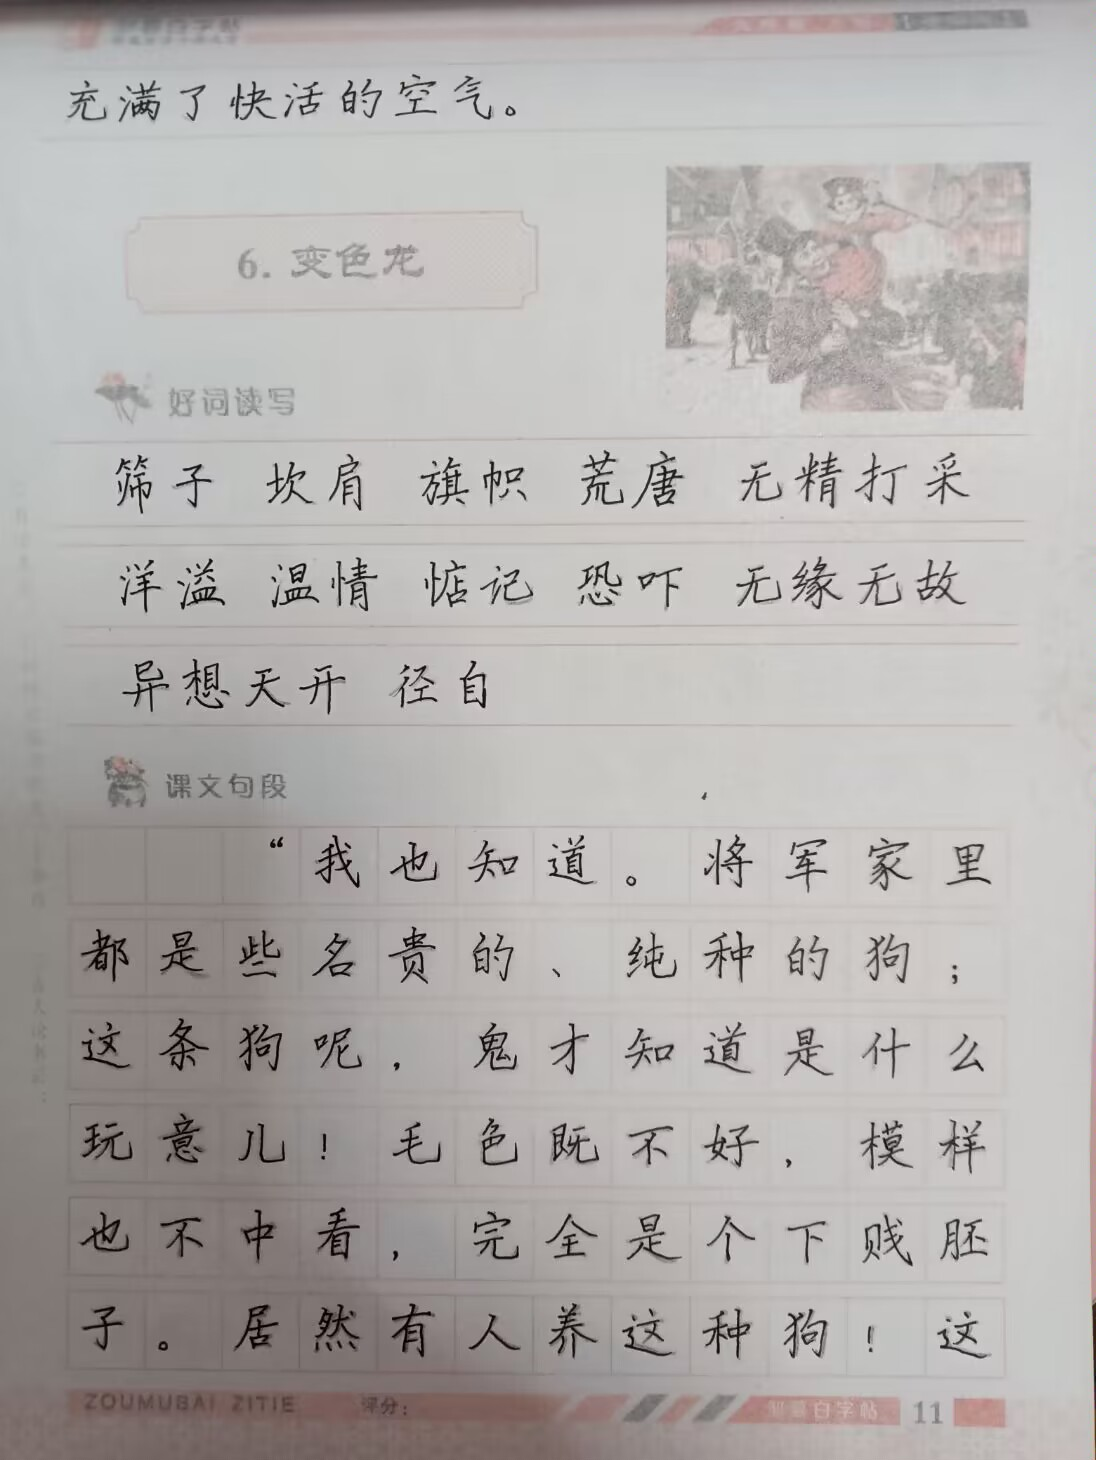 充满了快活的空气。
6. 变色龙
好词读写
筛子 坎肩 旗帜 荒唐 无精打采
洋溢 温情 惦记 恐吓 无缘无故
异想天开 径自
课文句段
“我也知道。将军家里
都是些名贵的、纯种的狗；
这条狗呢，鬼才知道是什么
玩意儿！毛色既不好，模样
也不中看，完全是个下贱胚
子。居然有人养这种狗！这
ZOUMUBAI ZITIE 评分： 邹慕白字帖 11